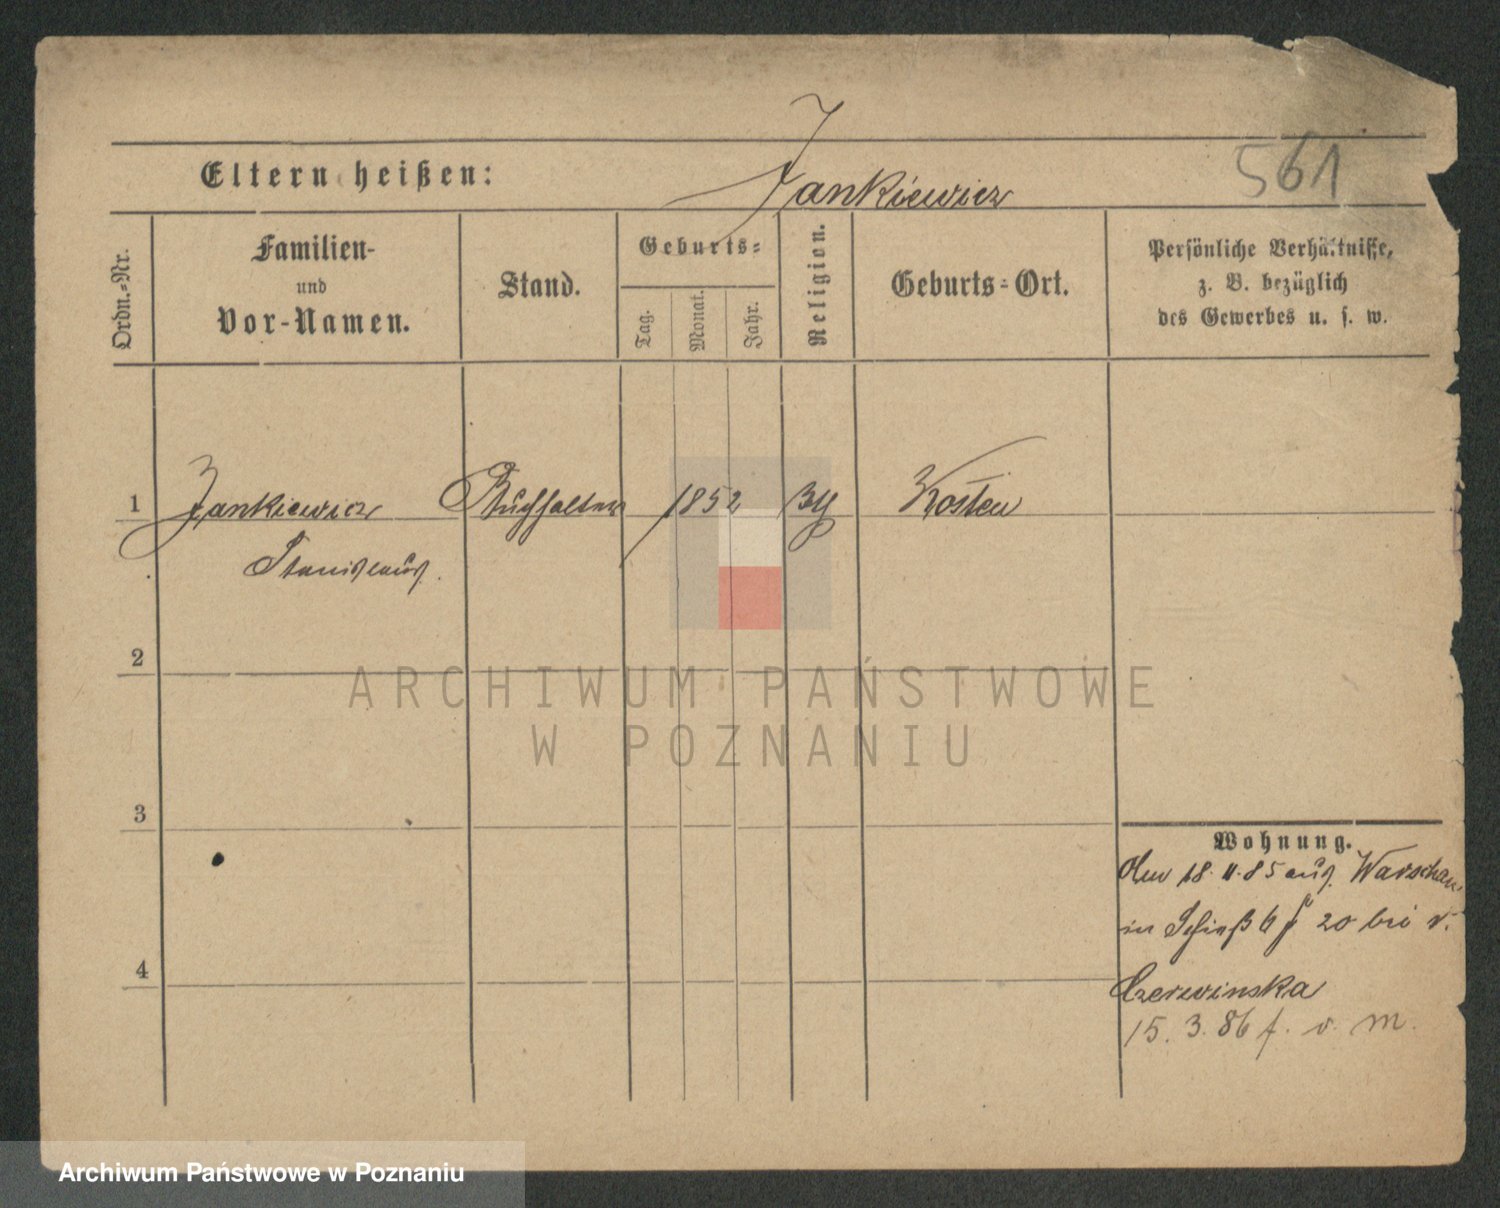 Jankiewicz
561
Eltern heißen:
Ordn.-Nr.
Familien-
und
Vor-Namen.
Stand.
Geburts-
Tag.
Monat.
Jahr.
Religion.
Geburts-Ort.
Persönliche Verhältnisse,
z. B. bezüglich
des Gewerbes u. s. w.
1 Jankiewicz Buchhalter 1852 Kosten
Stanislaus.
2
ARCHIWUM PAŃSTWOWE
W POZNANIU
3
Wohnung.
18.11.85 aus Warschau
in 20 bei
Czerwinska
4
15. 3. 86 f. v. M.
Archiwum Państwowe w Poznaniu